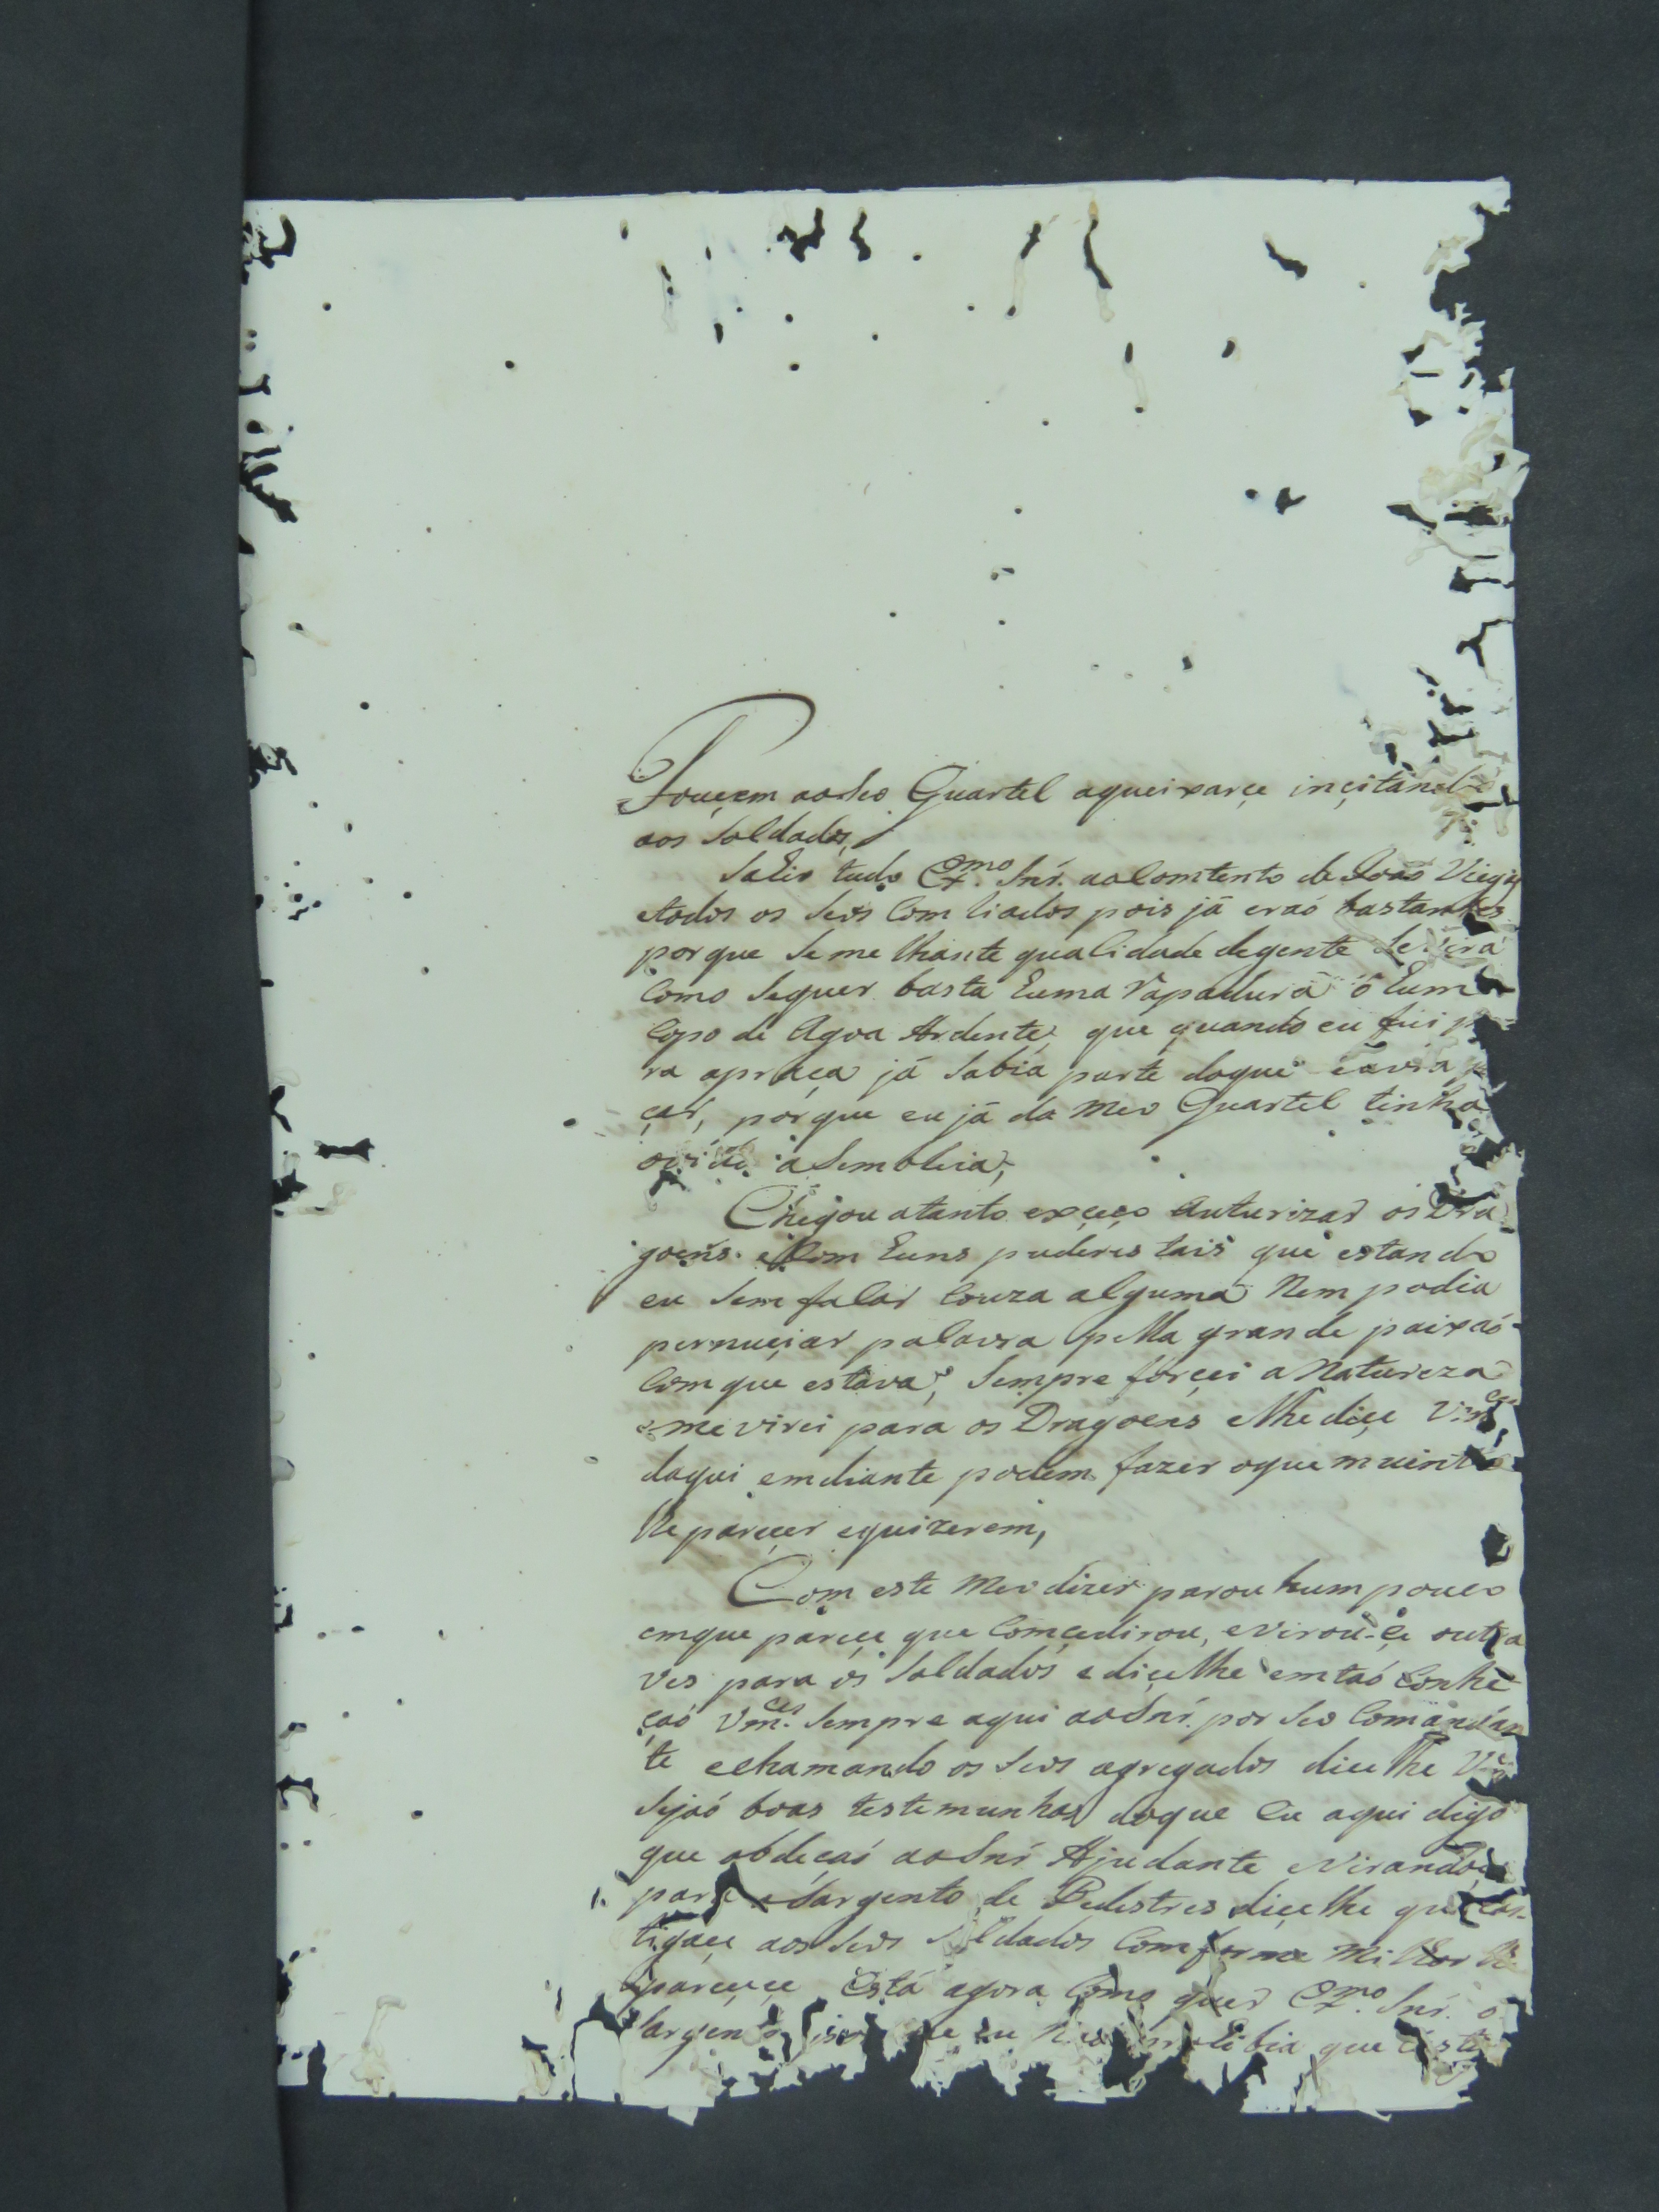 Fouçem ao Seo Quartel aqueixarçe inçitando
aos Soldados,
Sahio tudo Exmo. Snr. ao Comtento de João Viegas
etodos os Seos Comliados pois já eraó bastantes
porque Seme lhante qualidade degente Se vira
Como Sequer basta huma Rapadura ó hum
Copo de Agoa Ardente, que quando eu fui pa=
ra apraça já Sabia parte doque havia
çar, porque eu já do Meo Quartel tinha
ovido a Sembleia,
Chegou atanto exçeço Auturizar os Dra=
goens. e Com huns puderes tais que estando
eu Sem falar Couza alguma Nem podia
pernuçiar palavra pella grande paixaó
Com que estava, Sempre forçei a Natureza
eme virei para os Dragoens elhe diçe Vmces,
daqui emdiante podem fazer oque muinto
lhe pareçer equizerem,
Com este Meo dizer parou hum pouco
emque pareçe que Comçedirou, evirou-çe outra
ves para os Soldados e diçelhe emtaó Conhe
çaó Vmces. Sempre aqui ao Snr. por Seo Comandan
te echamando os Seos agregados diçe lhe
Sejaó boas testemunhas doque Eu aqui digo
que obdeçaó ao Snr Ajudante eVirandoçe
para o Sargento de Pedestres diçe lhe que Cas-
tigaçe aos Seos Soldados Comforme Milhor lhe
pareçeçe Está agora Como quer Exmo. Snr. o
Sargento eu que este